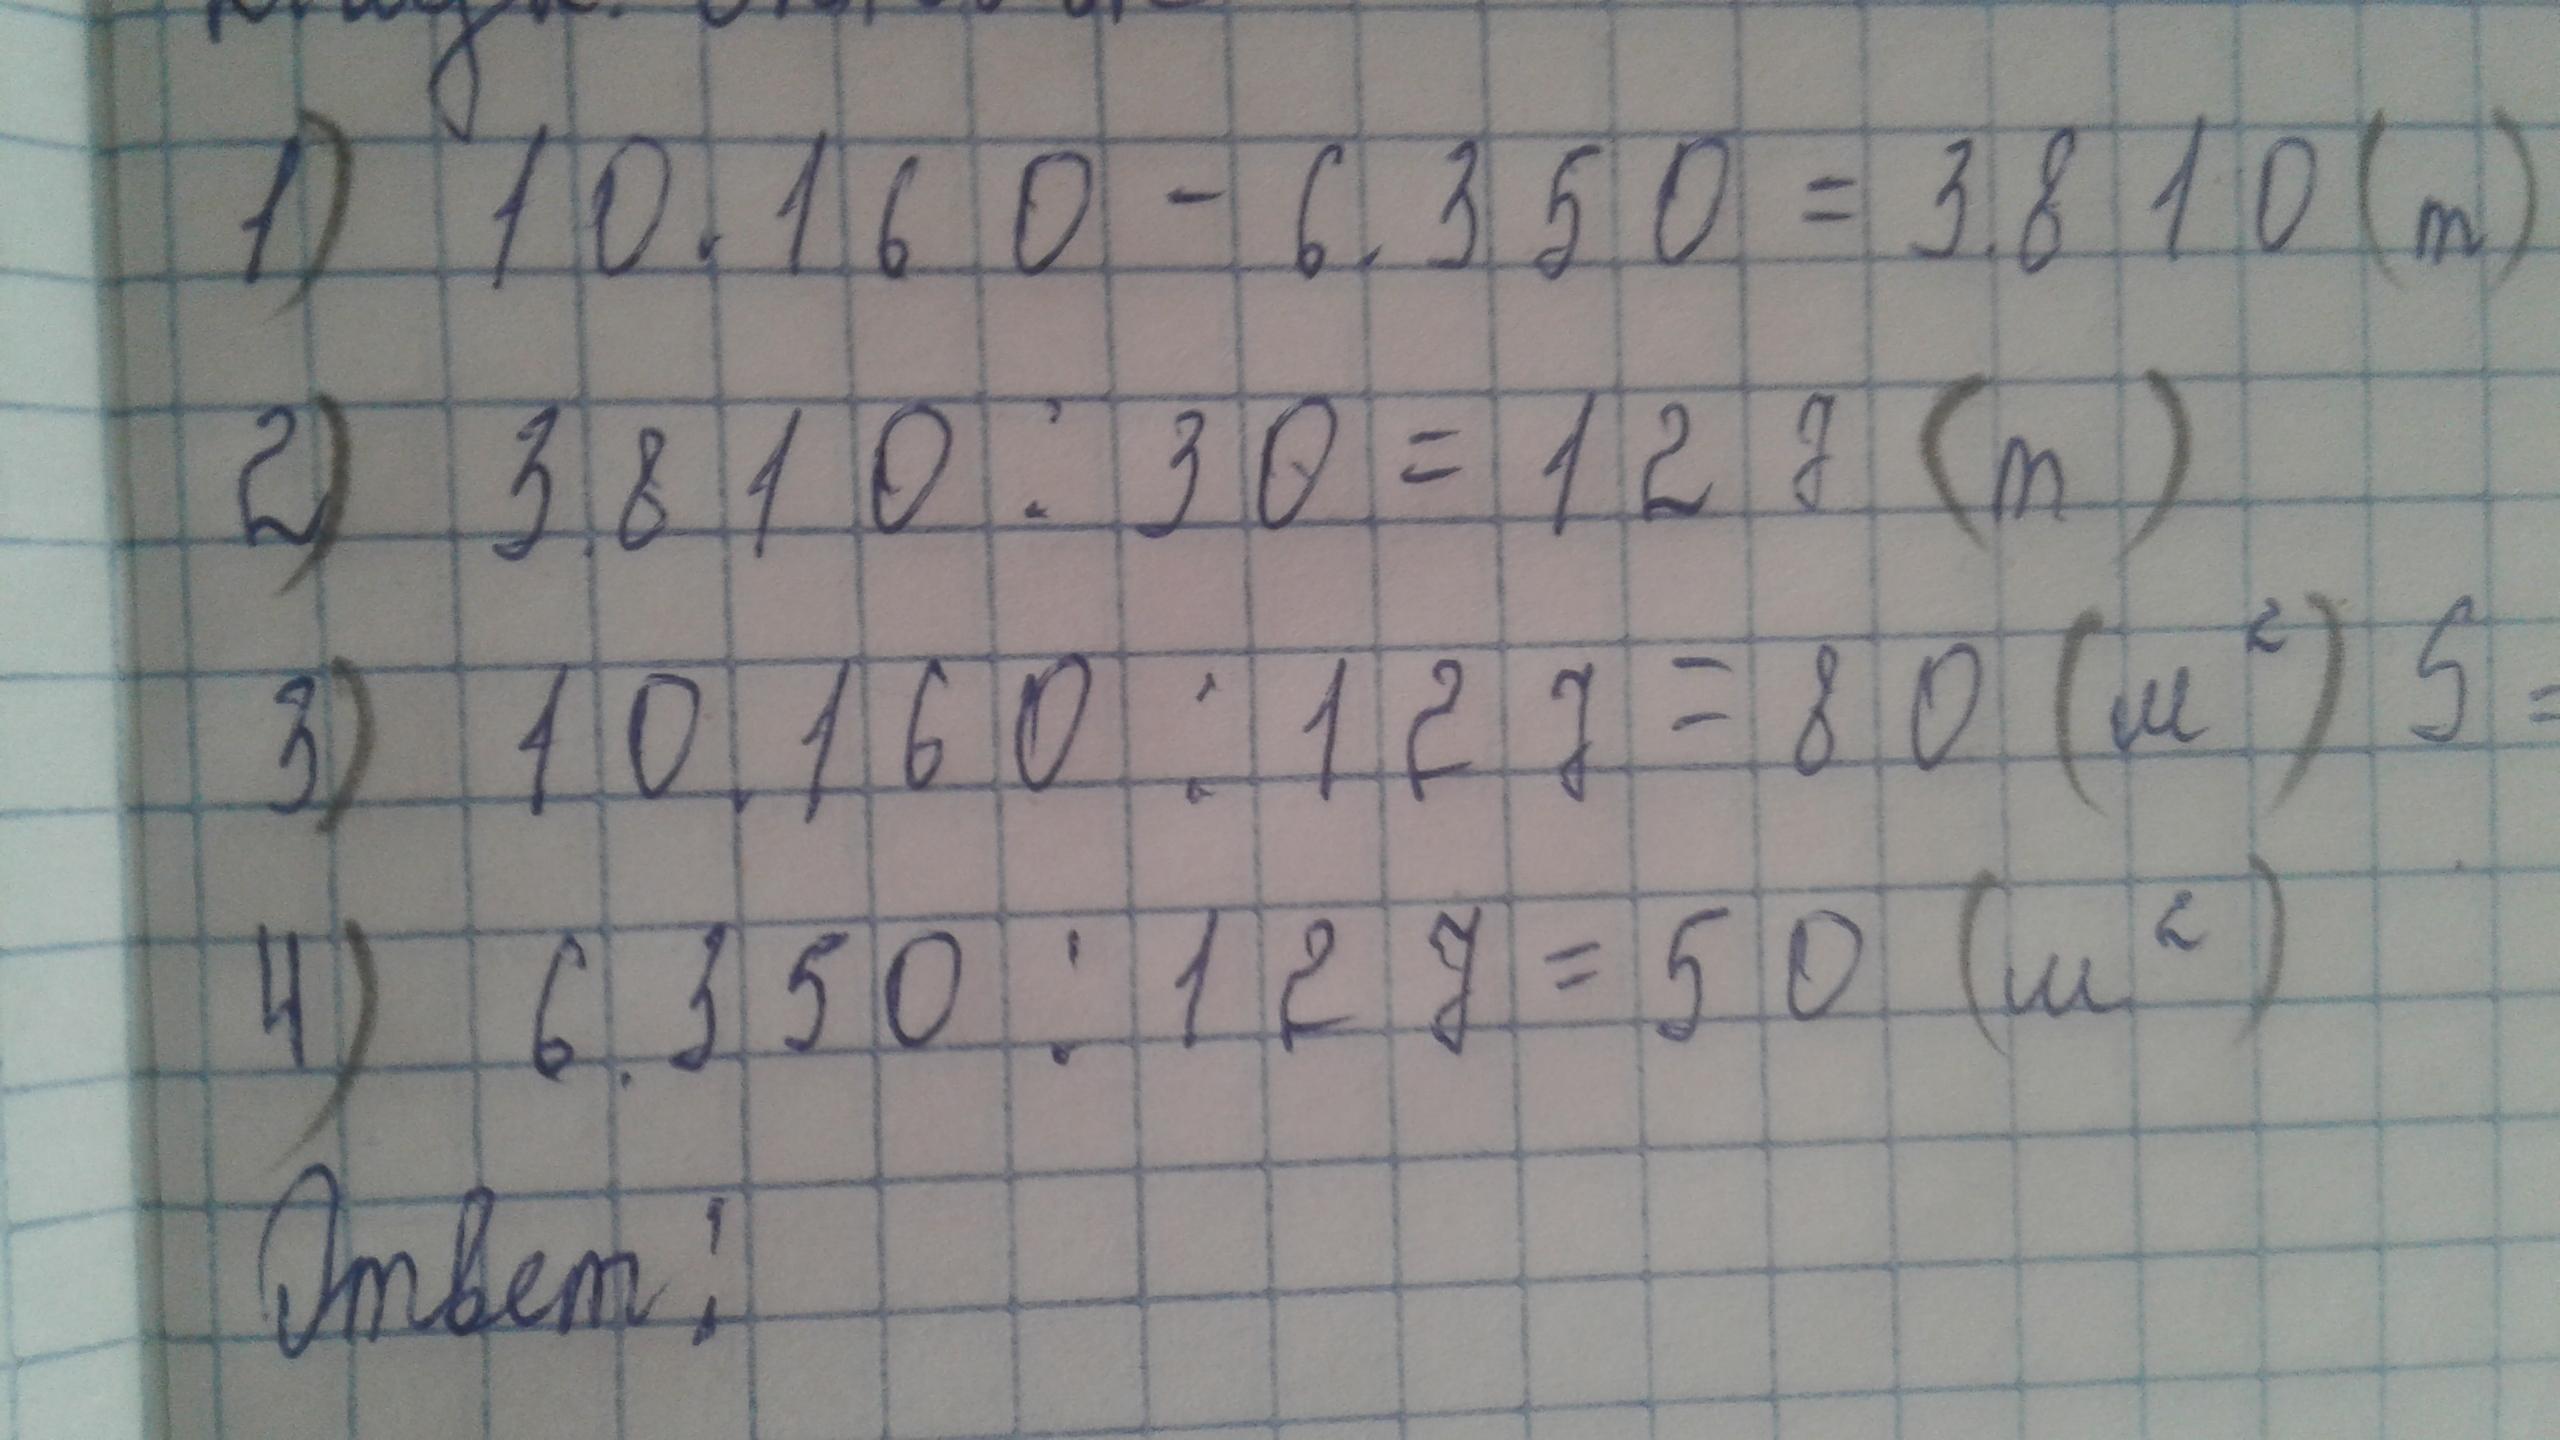 1) 10.160 - 6.350 = 3.810 (т)
2) 3.810 : 30 = 127 (т)
3) 10.160 : 127 = 80 (м²) S =
4) 6.350 : 127 = 50 (м²)
Ответ: